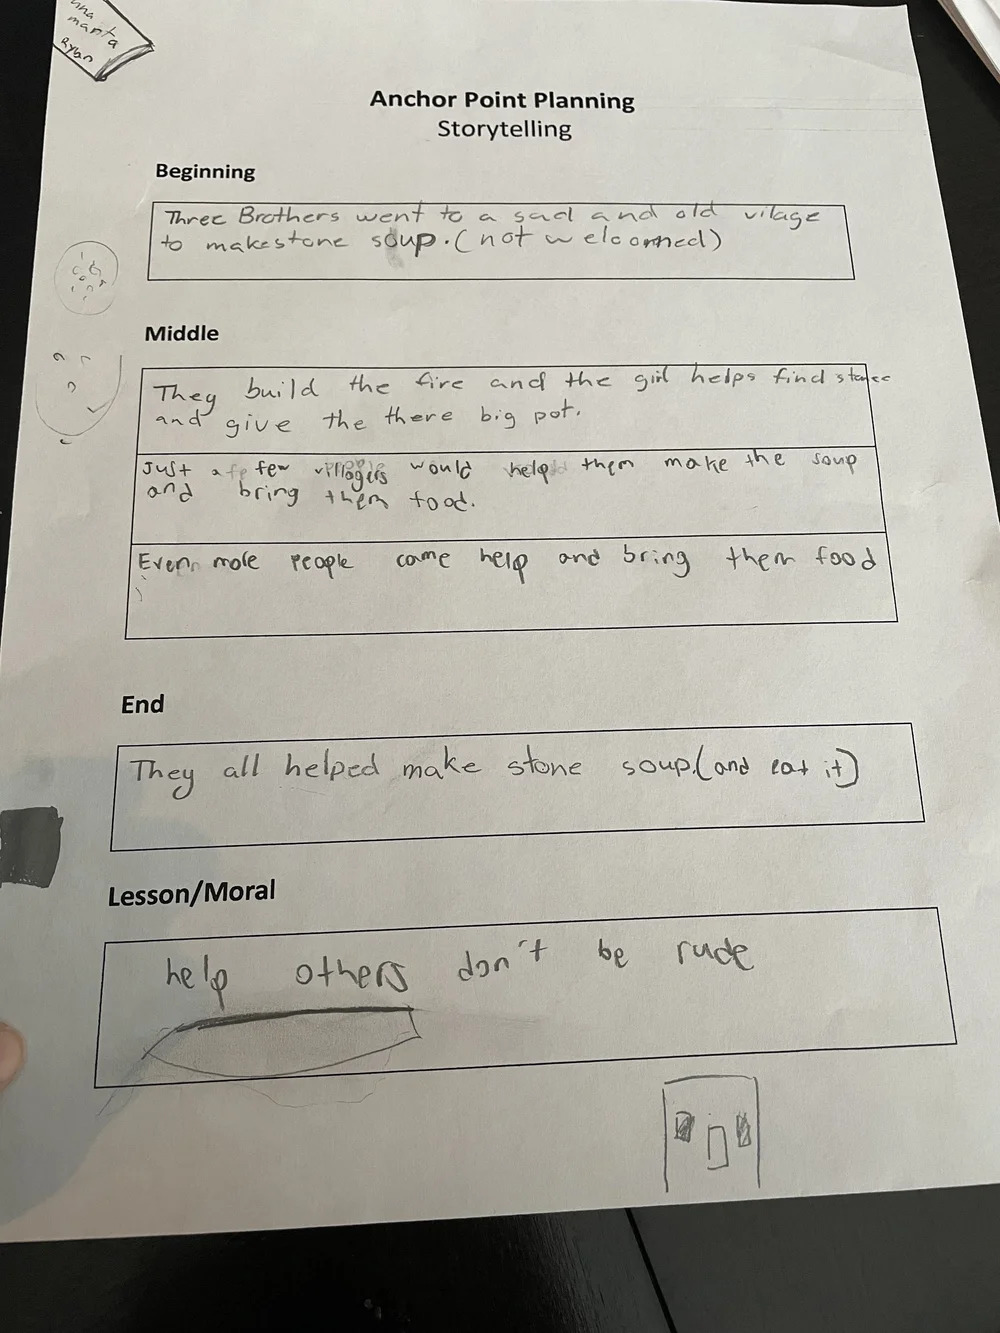 manta
Ryan
Anchor Point Planning
Storytelling
Beginning
Three Brothers went to a sad and old vilage
to make stone soup. (not welcomned)
Middle
They build the fire and the girl helps find stone
and give the there big pot.
Just a few villagers would help them make the soup
and bring them food.
Even more people came help and bring them food
End
They all helped make stone soup. (and eat it)
Lesson/Moral
help others don't be rude